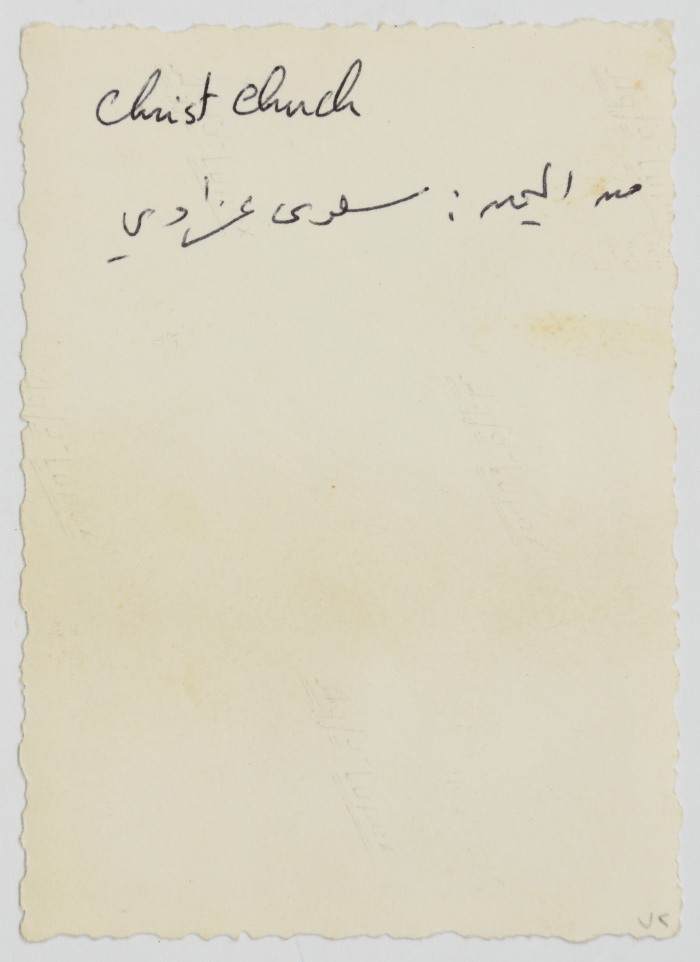 Christ Church
من اليمين : سلوى عزاوي